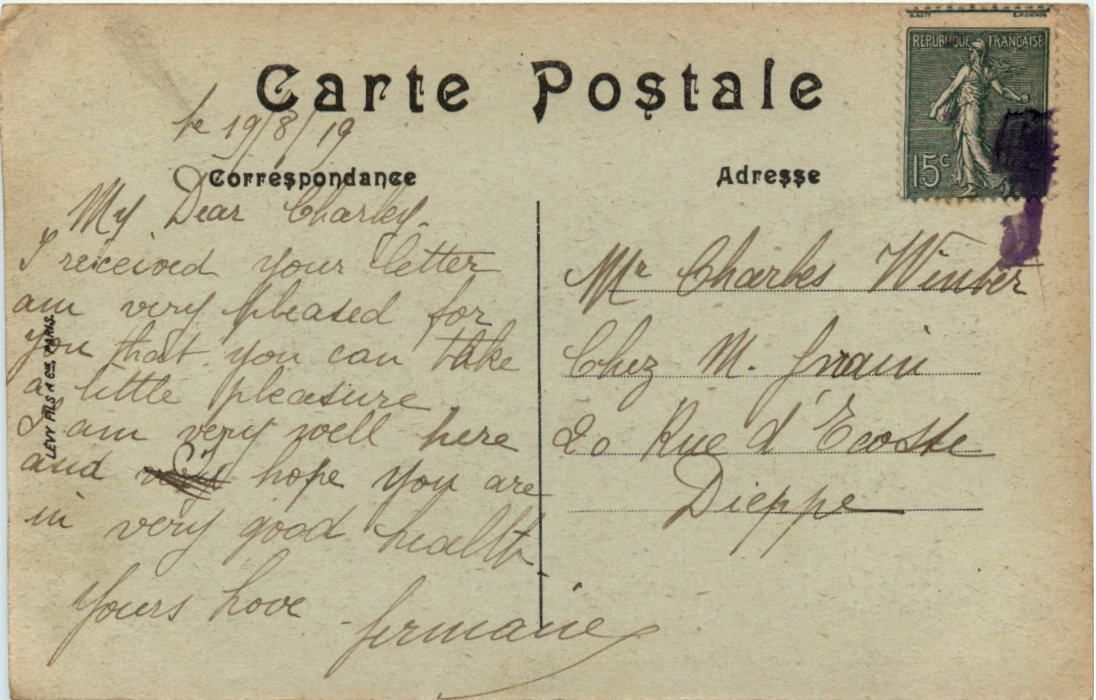 Carte Postale
RÉPUBLIQUE FRANÇAISE
15c
le 19/8/19
Correspondance
My Dear Charley.
I received your letter
am very pleased for
you that you can take
a little pleasure.
I am very well here
and hope you are
in very good health
Yours Love Germaine
LEVY FILS & Cie, PARIS.
Adresse
Mr Charles Winter
Chez M. Grain
20 Rue d'Ecosse
Dieppe